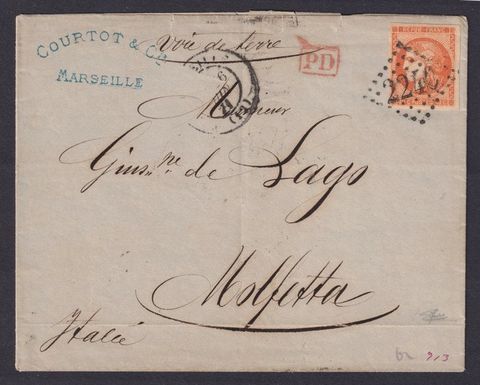 COURTOT & Cº
MARSEILLE
voie de terre
PD
REPUB. FRANC.
2240
6
71
Monsieur
Gius.pe de Lago
Molfetta
Italie
913